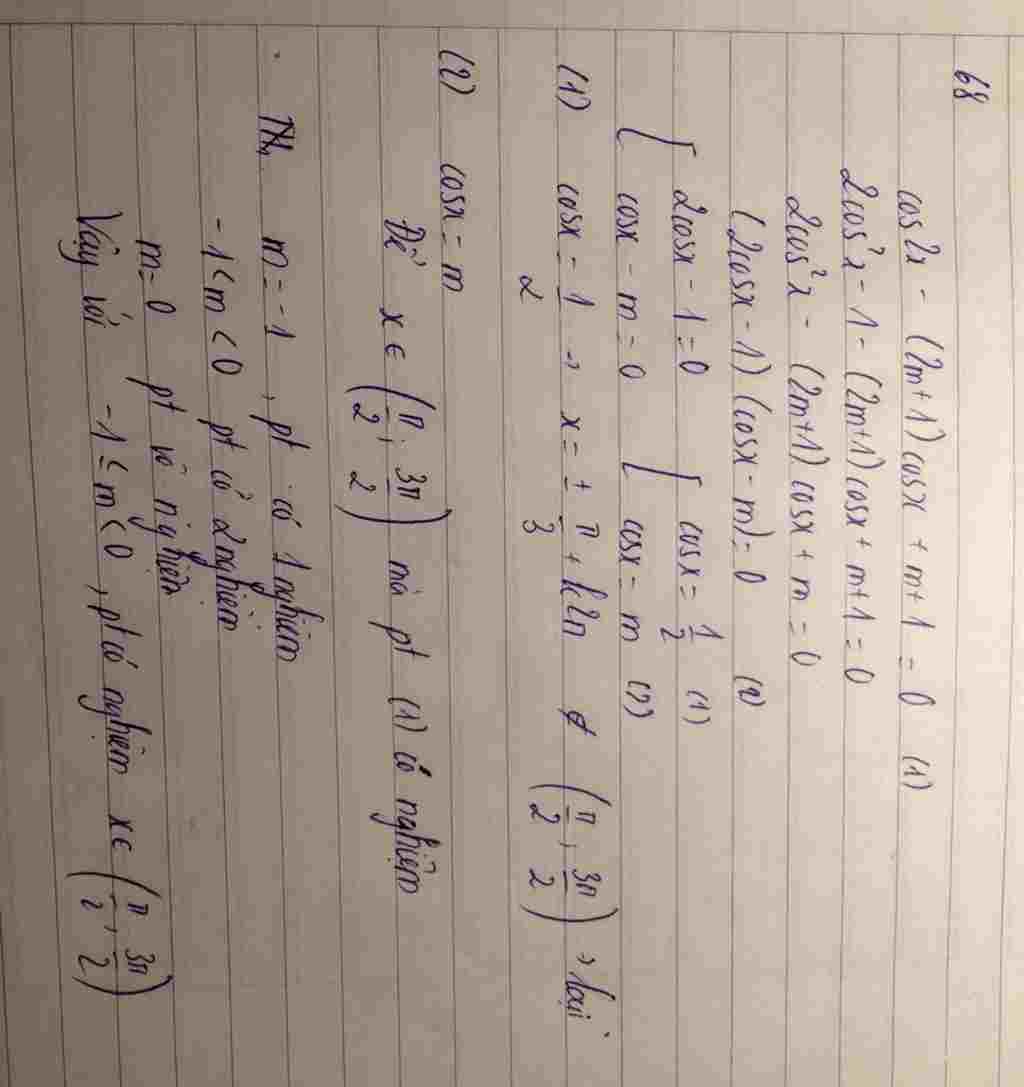 68
cos2x - (2m+1)cosx + m+1 = 0 (1)
2cos²x - 1 - (2m+1)cosx + m+1 = 0
2cos²x - (2m+1)cosx + m = 0
(2cosx - 1)(cosx - m) = 0 (2)
[ 2cosx - 1 = 0 [ cosx = 1/2 (1)
cosx - m = 0 cosx = m (2)
(1) cosx = 1/2 → x = ± π/3 + k2π ∉ (π/2; 3π/2) → loại
(2) cosx = m
Để x ∈ (π/2; 3π/2) mà pt (1) có nghiệm
TH1 m = -1, pt có 1 nghiệm
-1 < m < 0 pt có 2 nghiệm
m = 0 pt vô nghiệm
Vậy với -1 ≤ m < 0, pt có nghiệm x ∈ (π/2; 3π/2)